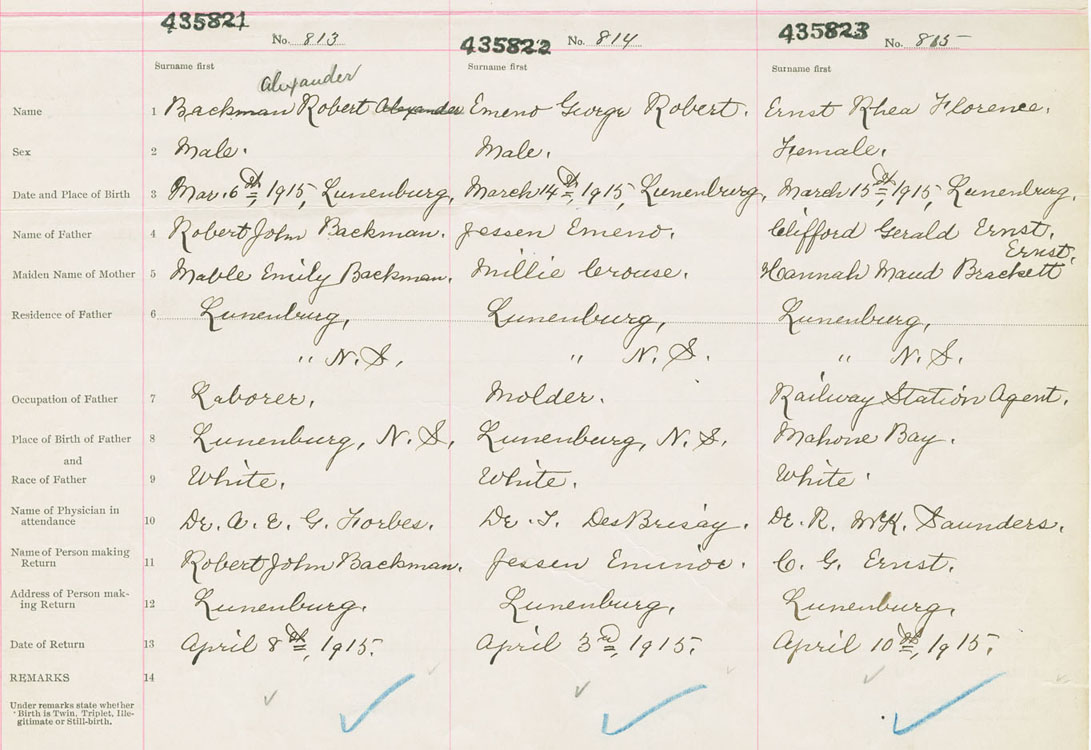 435821 No. 813 435822 No. 814 435823 No. 815
Surname first Surname first Surname first
Alexander
Name 1 Backman Robert Alexander Emeno George Robert. Ernst Rhea Florence.
Sex 2 Male. Male. Female.
Date and Place of Birth 3 Mar. 6th 1915, Lunenburg, March 14th, 1915, Lunenburg, March 15th 1915, Lunenburg.
Name of Father 4 Robert John Backman. Jessen Emeno. Clifford Gerald Ernst.
Ernst.
Maiden Name of Mother 5 Mable Emily Backman. Millie Crouse. Hannah Maud Brackett
Residence of Father 6 Lunenburg, Lunenburg, Lunenburg,
" N.S. " N.S. " N.S.
Occupation of Father 7 Laborer. Molder. Railway Station Agent.
Place of Birth of Father 8 Lunenburg, N.S. Lunenburg, N.S. Mahone Bay.
and
Race of Father 9 White. White. White.
Name of Physician in
attendance 10 Dr. A. E. G. Forbes. Dr. T. DesBrisay. Dr. R. McK. Saunders.
Name of Person making
Return 11 Robert John Backman. Jessen C. G. Ernst.
Address of Person mak-
ing Return 12 Lunenburg. Lunenburg. Lunenburg.
Date of Return 13 April 8th, 1915. April 3rd, 1915. April 10th, 1915.
REMARKS 14
Under remarks state whether
Birth is Twin, Triplet, Ille-
gitimate or Still-birth.